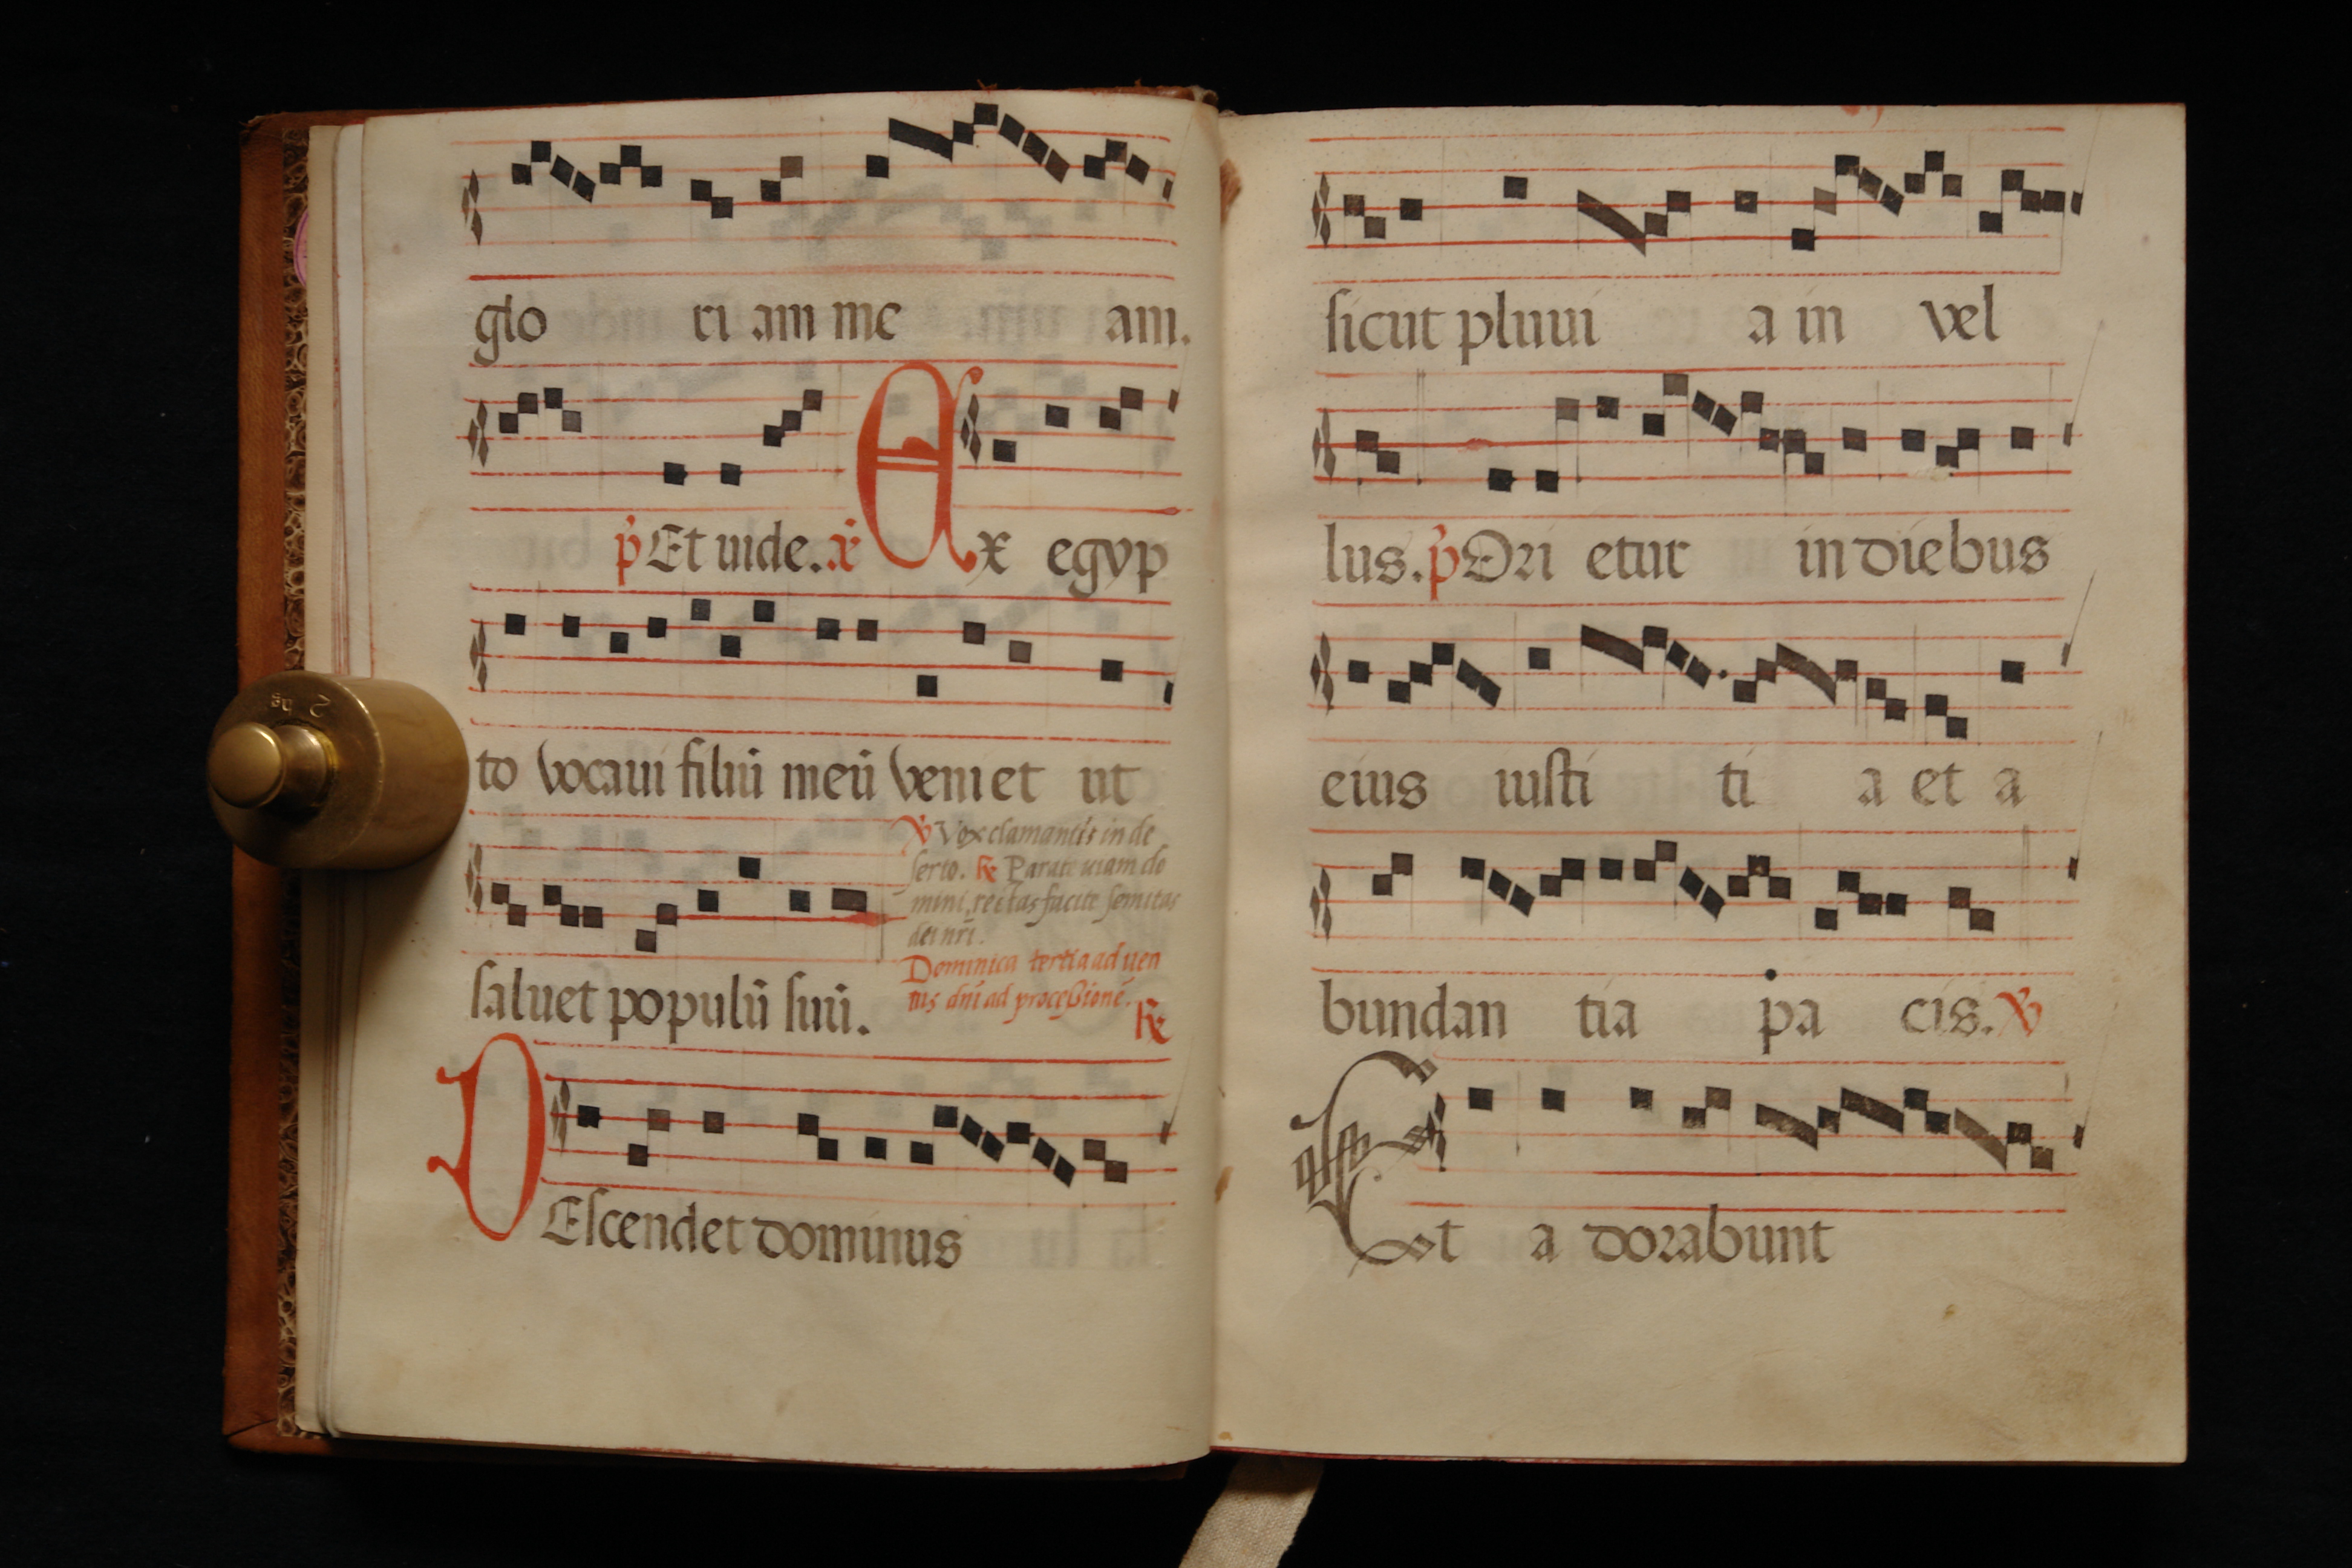 glo ri am me am.
p̃ Et uide. x̃ Ex egyp
to vocaui filiũ meũ veniet ut
saluet populũ suũ.
℣ Vox clamantis in de
serto. ℟ Parate uiam do
mini, rectas facite semitas
dei nr̃i.
Dominica tertia aduen
tus dnĩ ad processionẽ. ℟
DEscendet dominus
2 hg
sicut pluui a in vel
lus. p̃ Ori etur in diebus
eius iusti ti a et a
bundan tia pa cis. ℣
Et a dorabunt